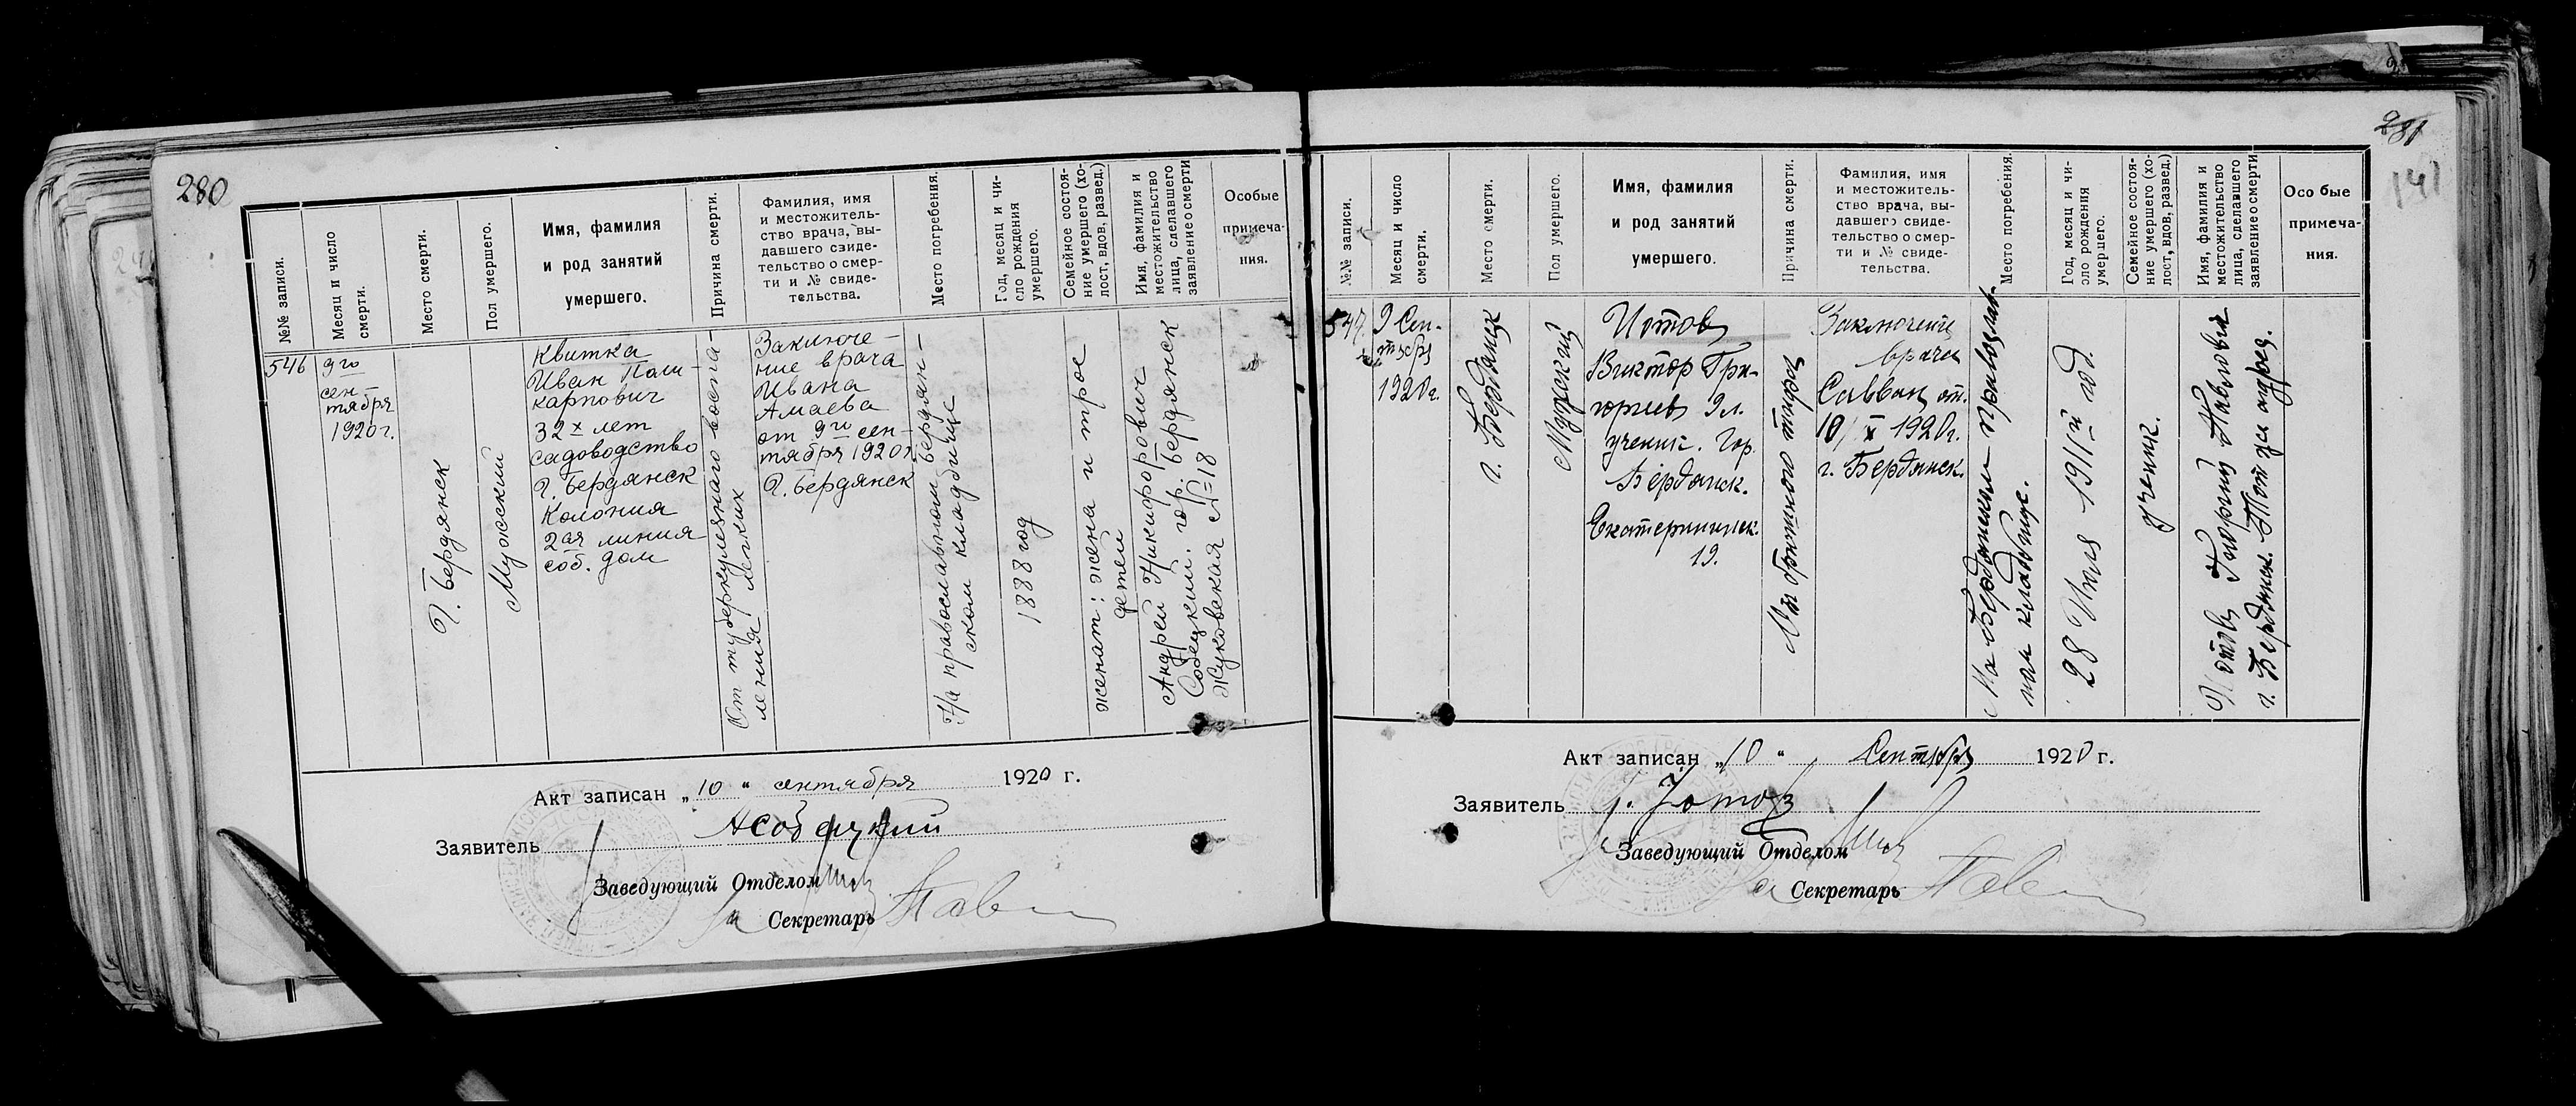 280
№№ записи.
Месяц и число
смерти.
Место смерти.
Пол умершего.
Имя, фамилия
и род занятий
умершего.
Причина смерти.
Фамилия, имя
и местожитель-
ство врача, вы-
давшего свиде-
тельство о смер-
ти и № свиде-
тельства.
Место погребения.
Год, месяц и чи-
сло рождения
умершего.
Семейное состоя-
ние умершего (хо-
лост, вдов, развед.)
Имя, фамилия и
местожительство
лица, сделавшего
заявление о смерти
Особые
примеча-
ния.
546
9го
сен-
тября
1920 г.
г. Бердянск
Мужский
Квитка
Иван Поли-
карпович
32х лет
садоводство
г. Бердянск
Колония
2ая линия
соб. дом
От туберкулезнаго воспа-
ления легких
Заключе-
ние врача
Ивана
Амаева
от 9го сен-
тября 1920 г.
г. Бердянск
На православном Бердян-
ском кладбище
1888 год
женат: жена и трое
детей
Андрей Никифорович
Собецкий. гор. Бердянск
Жуковская №=18
Акт записан „10" сентября 1920 г.
Заявитель АСобецкий
Заведующий Отделом
За Секретарь
281
141
№№ записи.
Месяц и число
смерти.
Место смерти.
Пол умершего.
Имя, фамилия
и род занятий
умершего.
Причина смерти.
Фамилия, имя
и местожитель-
ство врача, вы-
давшего свиде-
тельство о смер-
ти и № свиде-
тельства.
Место погребения.
Год, месяц и чи-
сло рождения
умершего.
Семейное состоя-
ние умершего (хо-
лост, вдов, развед.)
Имя, фамилия и
местожительство
лица, сделавшего
заявление о смерти
Особые
примеча-
ния.
547
9 Сен-
тября
1920 г.
г. Бердянск
Мужский
Виктор Гри-
горьев 9 л.
ученик. Гор.
Бердянск.
Екатерининск.
19.
От брюшного тифа
Заключение
врача
Саввы от
10/IX 1920 г.
г. Бердянск
На Бердянском православ-
ном кладбище.
28 Июля 1911й год.
ученик.
Григорий Павлович
г. Бердянск. Тот же адрес.
Акт записан „10" Сентября 1920 г.
Заявитель
Заведующий Отделом
За Секретарь